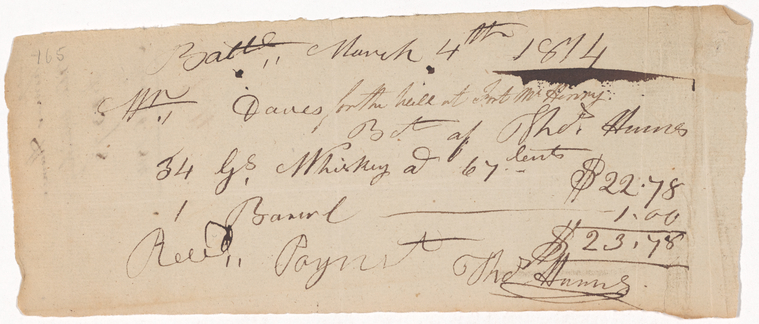 165
Balto,, March 4th 1814
Mr,, Daves, for the use at Fort McHenry.
Bt of Thos. Hanns
34 Gs. Whiskey a 67 Cents $22.78
1 Barrel 1.00
$23.78
Recd,, Paymt Thos Hanns